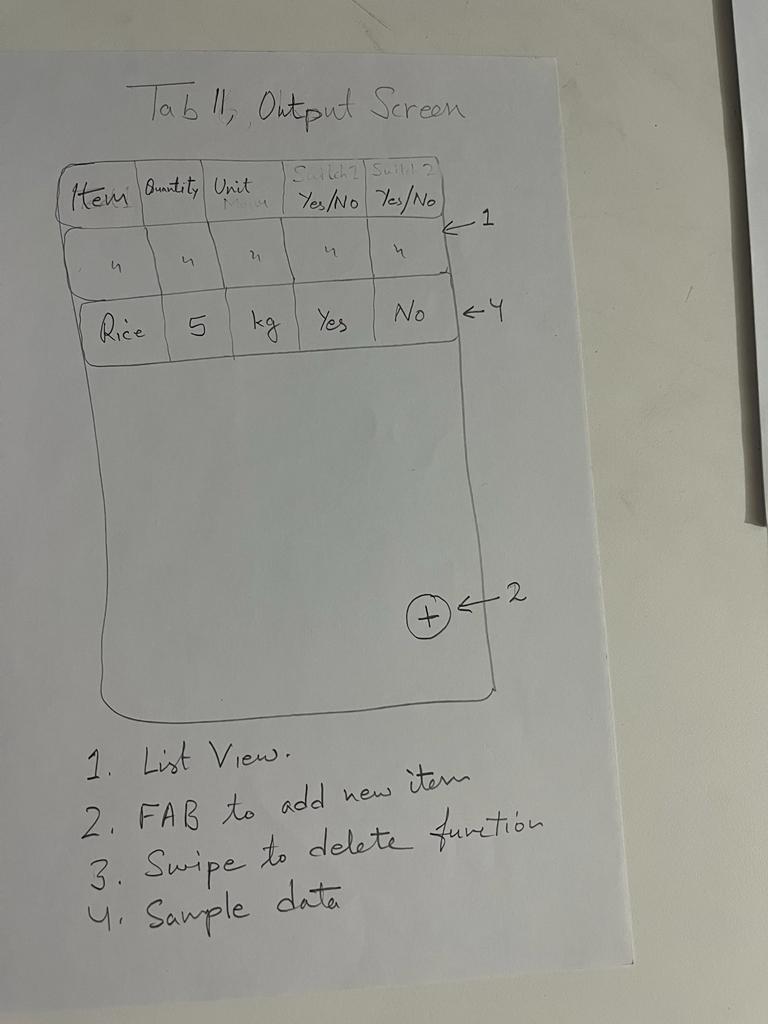 Tab 11, Output Screen
Item Quantity Unit Switch 1 Yes/No Switch 2 Yes/No
← 1
" " " " "
Rice 5 kg Yes No ← 4
+ ← 2
1. List View.
2. FAB to add new item
3. Swipe to delete function
4. Sample data